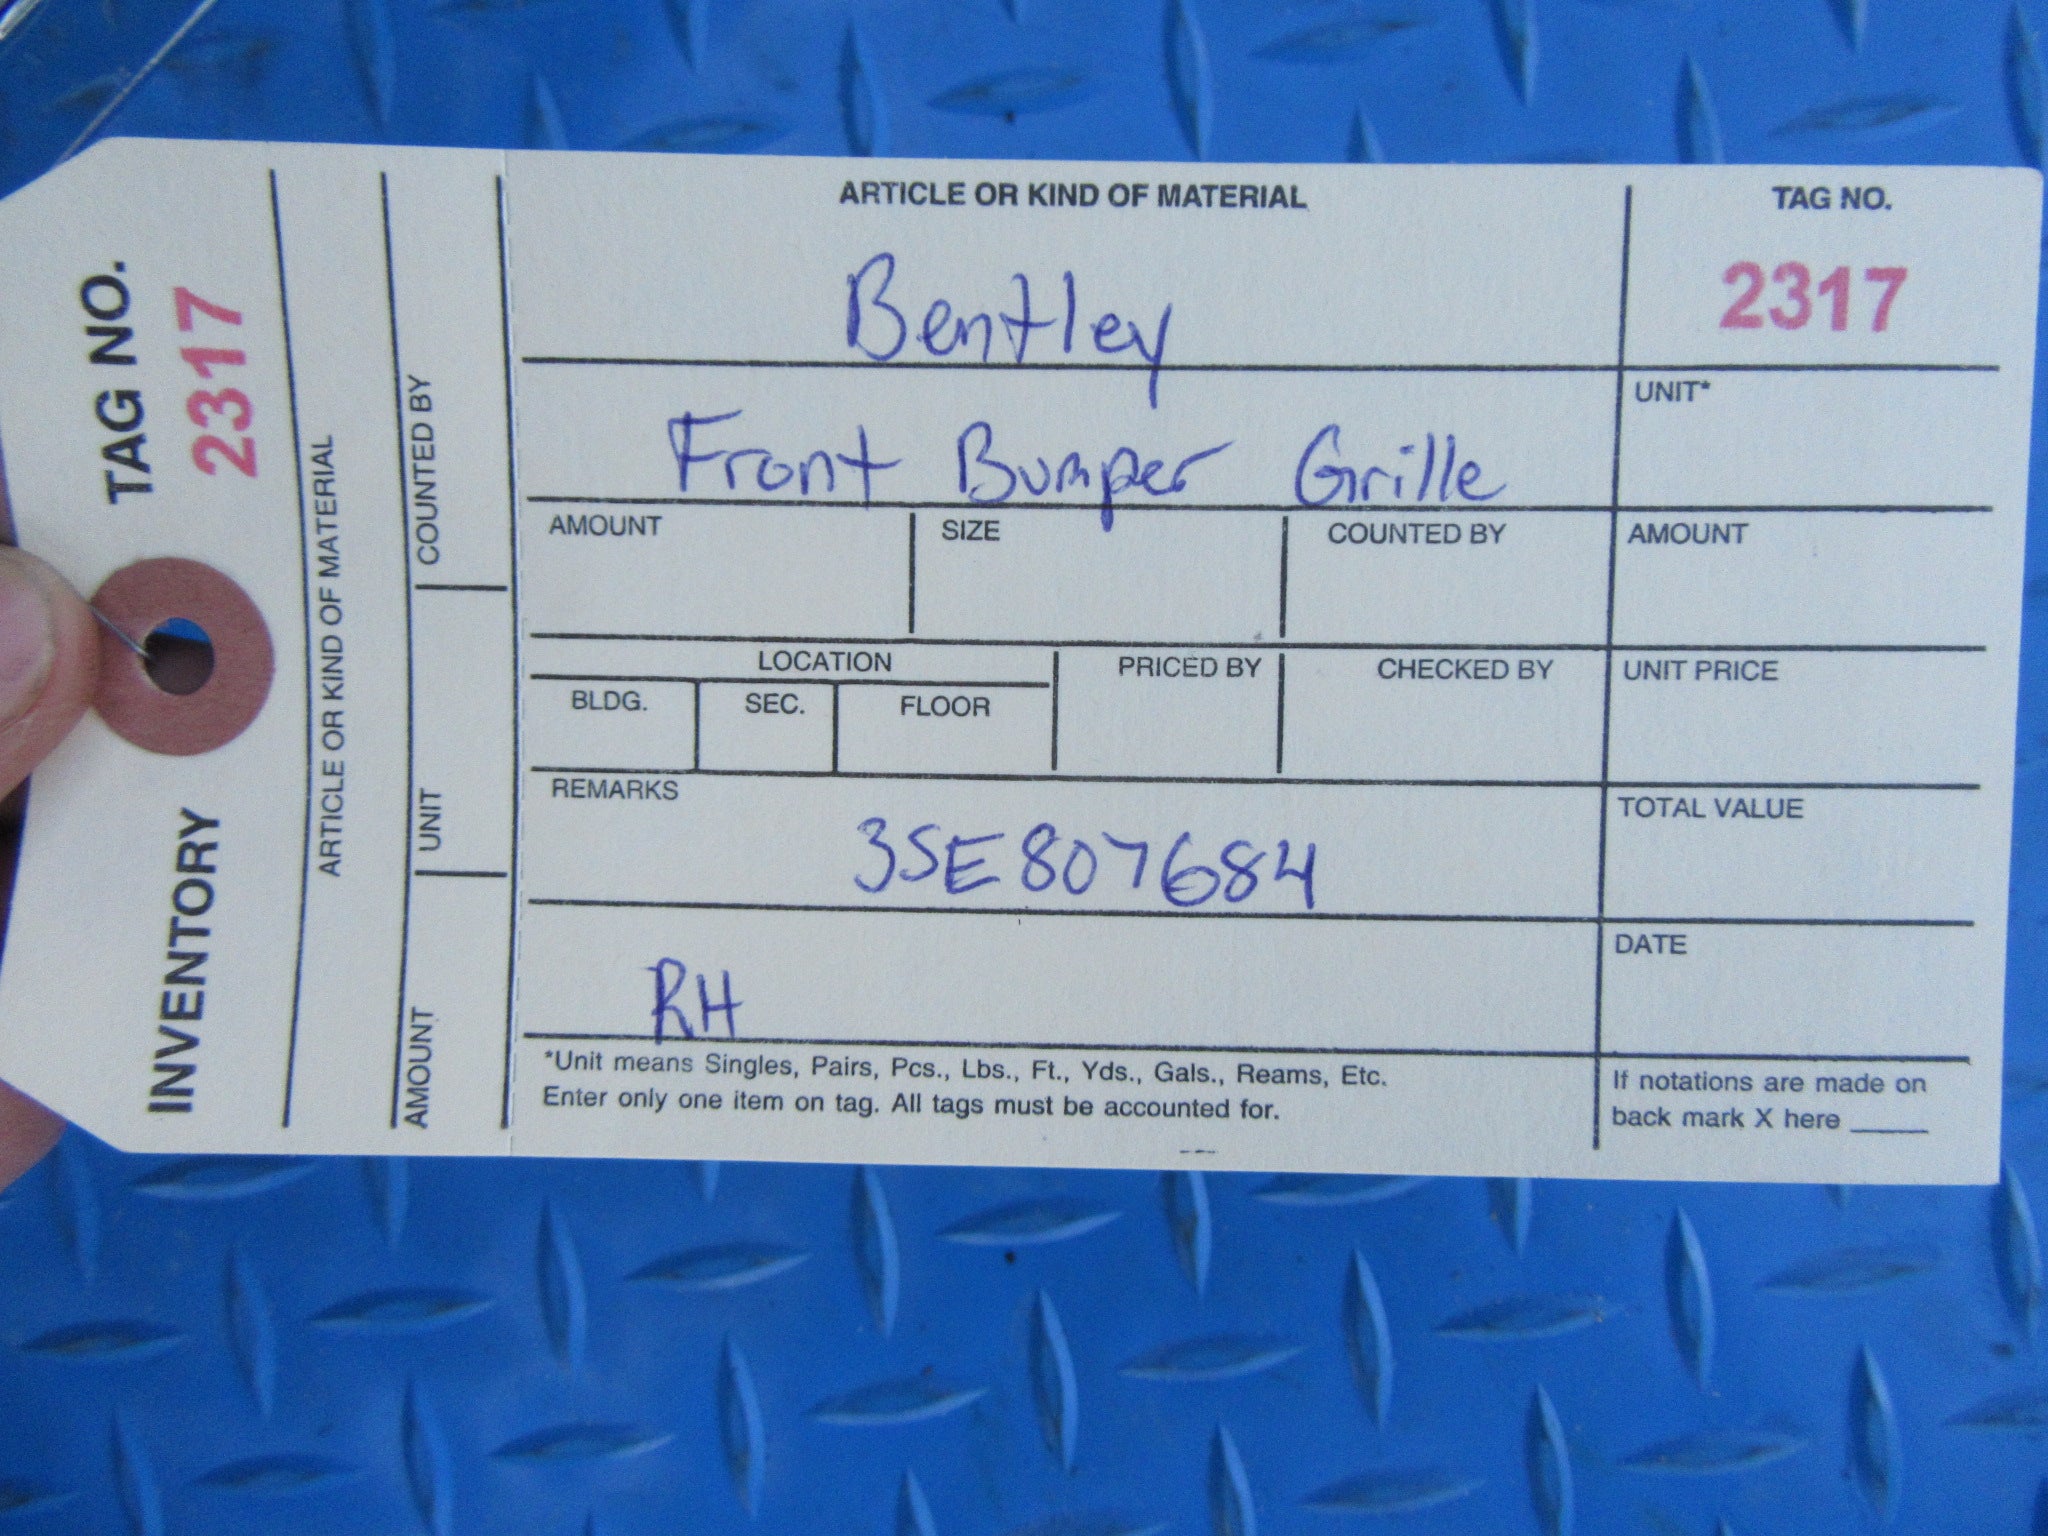 TAG NO.
2317
INVENTORY
ARTICLE OR KIND OF MATERIAL
COUNTED BY
UNIT
AMOUNT
ARTICLE OR KIND OF MATERIAL
Bentley
Front Bumper Grille
TAG NO.
2317
UNIT*
AMOUNT
SIZE
COUNTED BY
AMOUNT
LOCATION
BLDG.
SEC.
FLOOR
PRICED BY
CHECKED BY
UNIT PRICE
REMARKS
3SE807684
TOTAL VALUE
RH
DATE
*Unit means Singles, Pairs, Pcs., Lbs., Ft., Yds., Gals., Reams, Etc.
Enter only one item on tag. All tags must be accounted for.
If notations are made on
back mark X here ____